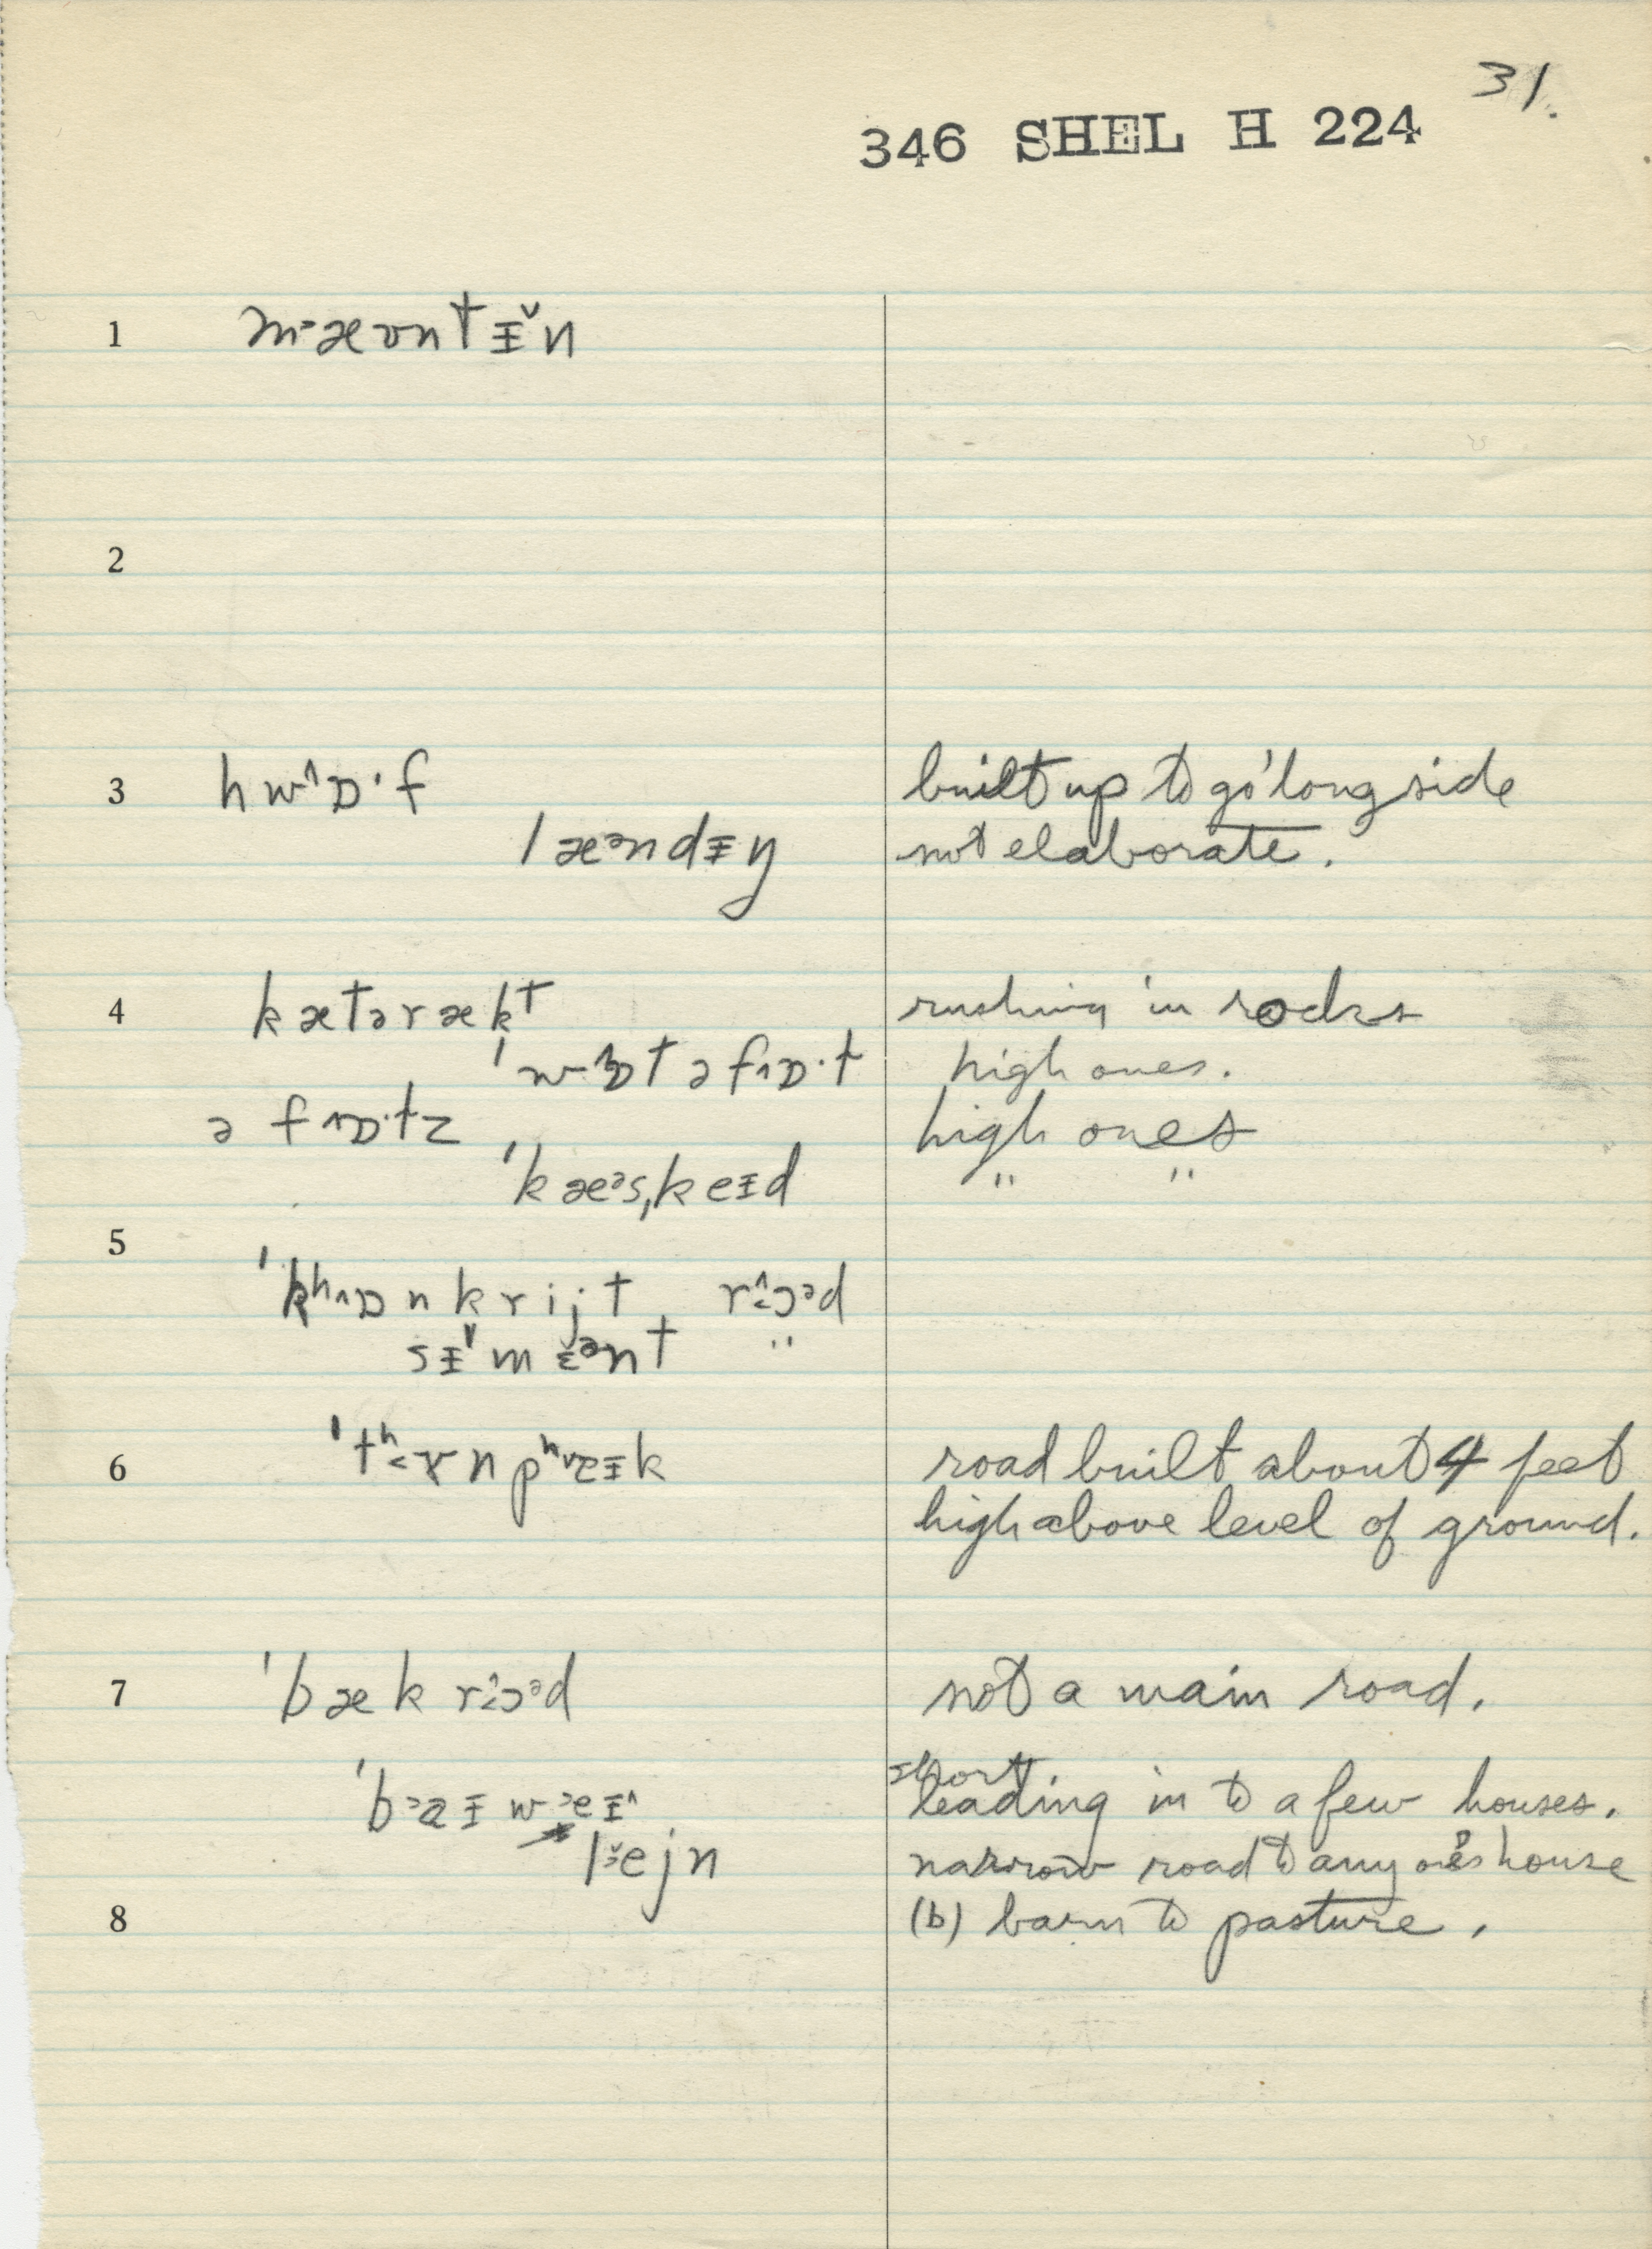 31.
346 SHEL H 224
1 m˃æʊntɨ̌n
2
3 hw^ɒ·f built up to go 'long side
læᵊndɨŋ not elaborate.
4 kætəræk^t rushing in rocks
'wɒtəf^ɒ·t high ones.
əf^ɒ·tz high ones
'kæᵊs,keɨd " "
5
'kʰ^ɒnkrijt r^ɔᵊd
sɨ̌mɛᵊnt "
6 'tʰ˂ɤnpʰˇeɨk road built about 4 feet
high above level of ground.
7 'bæk r^ɔᵊd not a main road.
short
'b˃aɨw˃eɨ^ leading in to a few houses.
l˃ˇejn narrow road to any one's house
8 (b) barn to pasture.